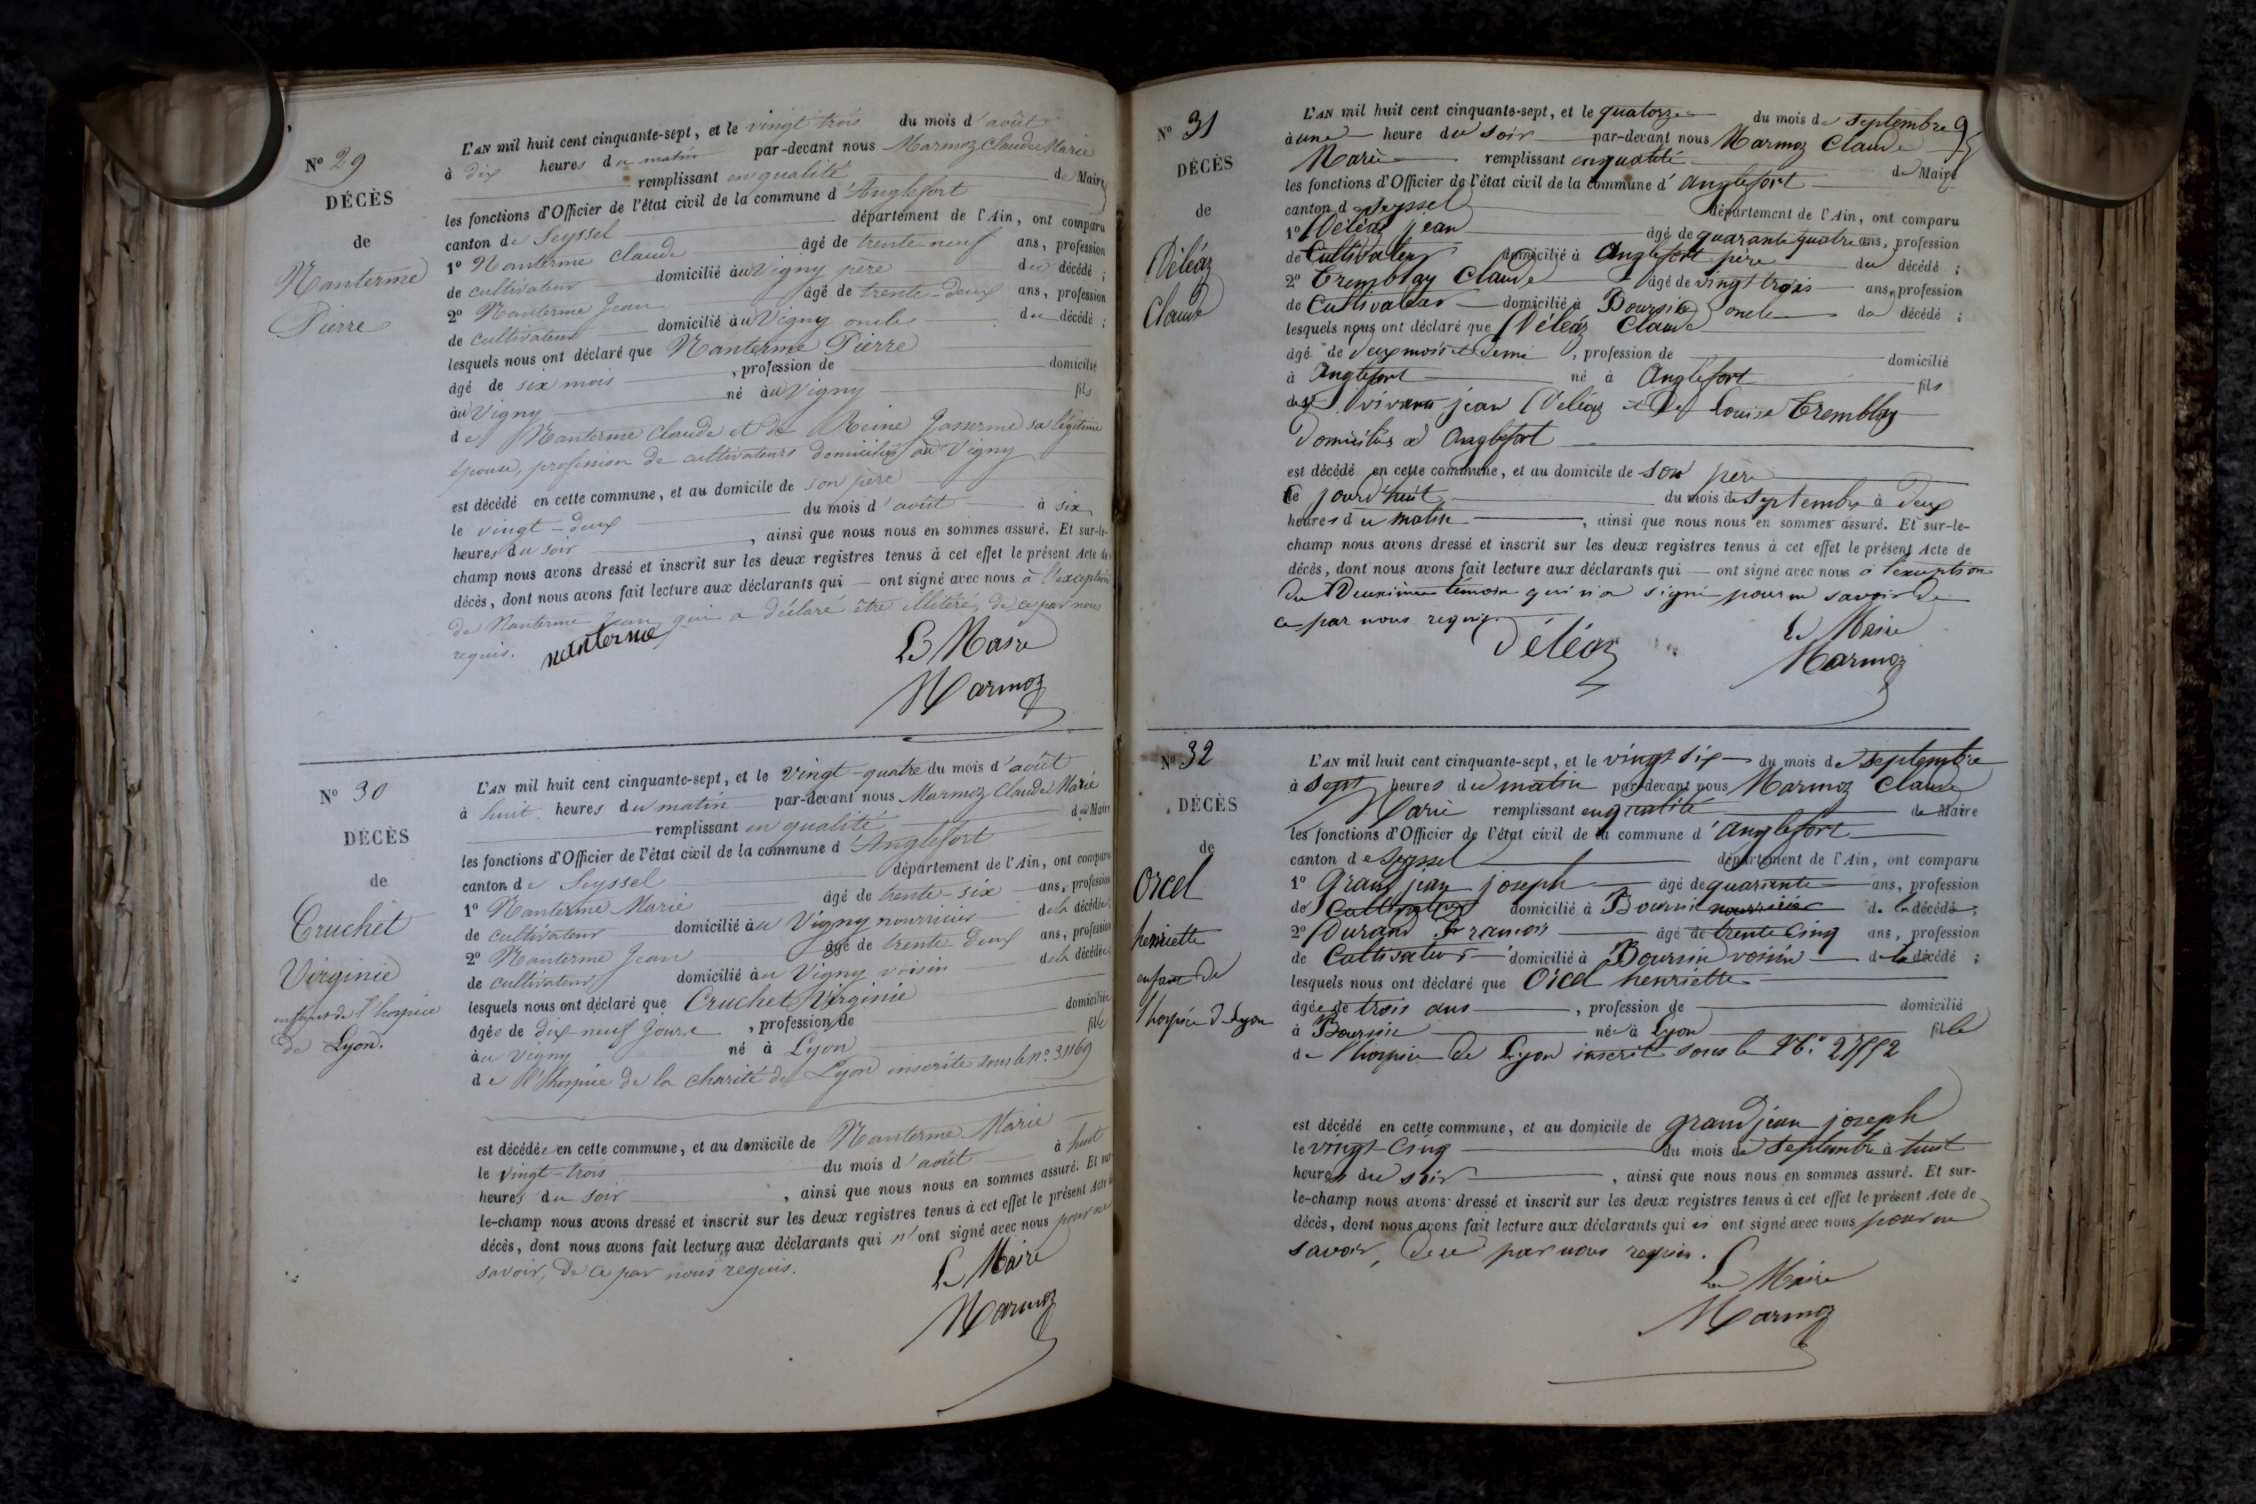 Nº 29
DÉCÈS
de
Nanterme
Pierre
L'AN mil huit cent cinquante-sept, et le vingt trois du mois d'août
à dix heures du matin par-devant nous Marmoz Claude Marie
remplissant en qualité de Maire
les fonctions d'Officier de l'état civil de la commune d'Anglefort
canton de Seyssel département de l'Ain, ont comparu
1º Nanterme Claude âgé de trente neuf ans, profession
de cultivateur domicilié au Vigny père du décédé ;
2º Nanterme Jean âgé de trente-deux ans, profession
de cultivateur domicilié au Vigny oncle du décédé ;
lesquels nous ont déclaré que Nanterme Pierre
âgé de six mois , profession de domicilié
au Vigny né au Vigny fils
de Nanterme Claude et de Reine Jasserme sa légitime
épouse, profession de cultivateurs domiciliés au Vigny
est décédé en cette commune, et au domicile de son père
le vingt-deux du mois d'août à six
heures du soir , ainsi que nous nous en sommes assuré. Et sur-le-
champ nous avons dressé et inscrit sur les deux registres tenus à cet effet le présent Acte de
décès, dont nous avons fait lecture aux déclarants qui — ont signé avec nous à l'exception
de Nanterme Jean qui a déclaré être illitéré, de ce par nous
requis.
nanterme
Le Maire
Marmoz
Nº 30
DÉCÈS
de
Cruchet
Virginie
enfant de l'hospice
de Lyon.
L'AN mil huit cent cinquante-sept, et le vingt-quatre du mois d'août
à huit heures du matin par-devant nous Marmoz Claude Marie
remplissant en qualité de Maire
les fonctions d'Officier de l'état civil de la commune d'Anglefort
canton de Seyssel département de l'Ain, ont comparu
1º Nanterme Marie âgé de trente-six ans, profession
de cultivateur domicilié au Vigny nourricier de la décédée
2º Nanterme Jean âgé de trente deux ans, profession
de cultivateur domicilié au Vigny voisin de la décédée
lesquels nous ont déclaré que Cruchet Virginie
âgée de dix neuf jours , profession de domiciliée
au Vigny né à Lyon fille
de l'hospice de la charité de Lyon inscrite sous le nº 31169
est décédée en cette commune, et au domicile de Nanterme Marie
le vingt-trois du mois d'août à huit
heures du soir , ainsi que nous nous en sommes assuré. Et sur-
le-champ nous avons dressé et inscrit sur les deux registres tenus à cet effet le présent Acte de
décès, dont nous avons fait lecture aux déclarants qui n'ont signé avec nous pour ne
savoir, de ce par nous requis.
Le Maire
Marmoz
Nº 31
DÉCÈS
de
Déléaz
Claude
L'AN mil huit cent cinquante-sept, et le quatorze du mois de septembre
à une heure du soir par-devant nous Marmoz Claude
Marie remplissant en qualité de Maire
les fonctions d'Officier de l'état civil de la commune d'anglefort
canton d seyssel département de l'Ain, ont comparu
1º Déléaz jean âgé de quarante quatre ans, profession
de Cultivateur domicilié à Anglefort père du décédé ;
2º Tremblay Claude âgé de vingt trois ans, profession
de Cultivateur domicilié à Boursin oncle du décédé ;
lesquels nous ont déclaré que Déléaz Claude
âgé de deux mois et demi , profession de domicilié
à Anglefort né à Anglefort fils
des vivants jean Déléaz et de Louise Tremblay
Domiciliés à Anglefort
est décédé en cette commune, et au domicile de son père
Ce jourd'huit du mois de septembre à deux
heures du matin , ainsi que nous nous en sommes assuré. Et sur-le-
champ nous avons dressé et inscrit sur les deux registres tenus à cet effet le présent Acte de
décès, dont nous avons fait lecture aux déclarants qui — ont signé avec nous à l'exception
du Deuxième témoin qui n'a signé pour ne savoir de
ce par nous requis.
Déléaz
Le Maire
Marmoz
Nº 32
DÉCÈS
de
Orcel
henriette
enfant de
l'hospice de Lyon
L'AN mil huit cent cinquante-sept, et le vingt six du mois de septembre
à sept heures du matin par-devant nous Marmoz Claude
Marie remplissant en qualité de Maire
les fonctions d'Officier de l'état civil de la commune d'anglefort
canton de seyssel département de l'Ain, ont comparu
1º Grand jean joseph âgé de quarante ans, profession
de Cultivateur domicilié à Boursin nourricier de la décédé ;
2º Durand francois âgé de trente Cinq ans, profession
de Cultivateur domicilié à Boursin voisin de la décédé ;
lesquels nous ont déclaré que Orcel henriette
âgée de trois ans , profession de domicilié
à Boursin née à Lyon fille
de l'hospice de Lyon inscrite sous le Nº. 27552
est décédé en cette commune, et au domicile de grand jean joseph
le vingt-Cinq du mois de septembre à huit
heures du soir , ainsi que nous nous en sommes assuré. Et sur-
le-champ nous avons dressé et inscrit sur les deux registres tenus à cet effet le présent Acte de
décès, dont nous avons fait lecture aux déclarants qui n ont signé avec nous pour ne
savoir, de ce par nous requis.
Le Maire
Marmoz